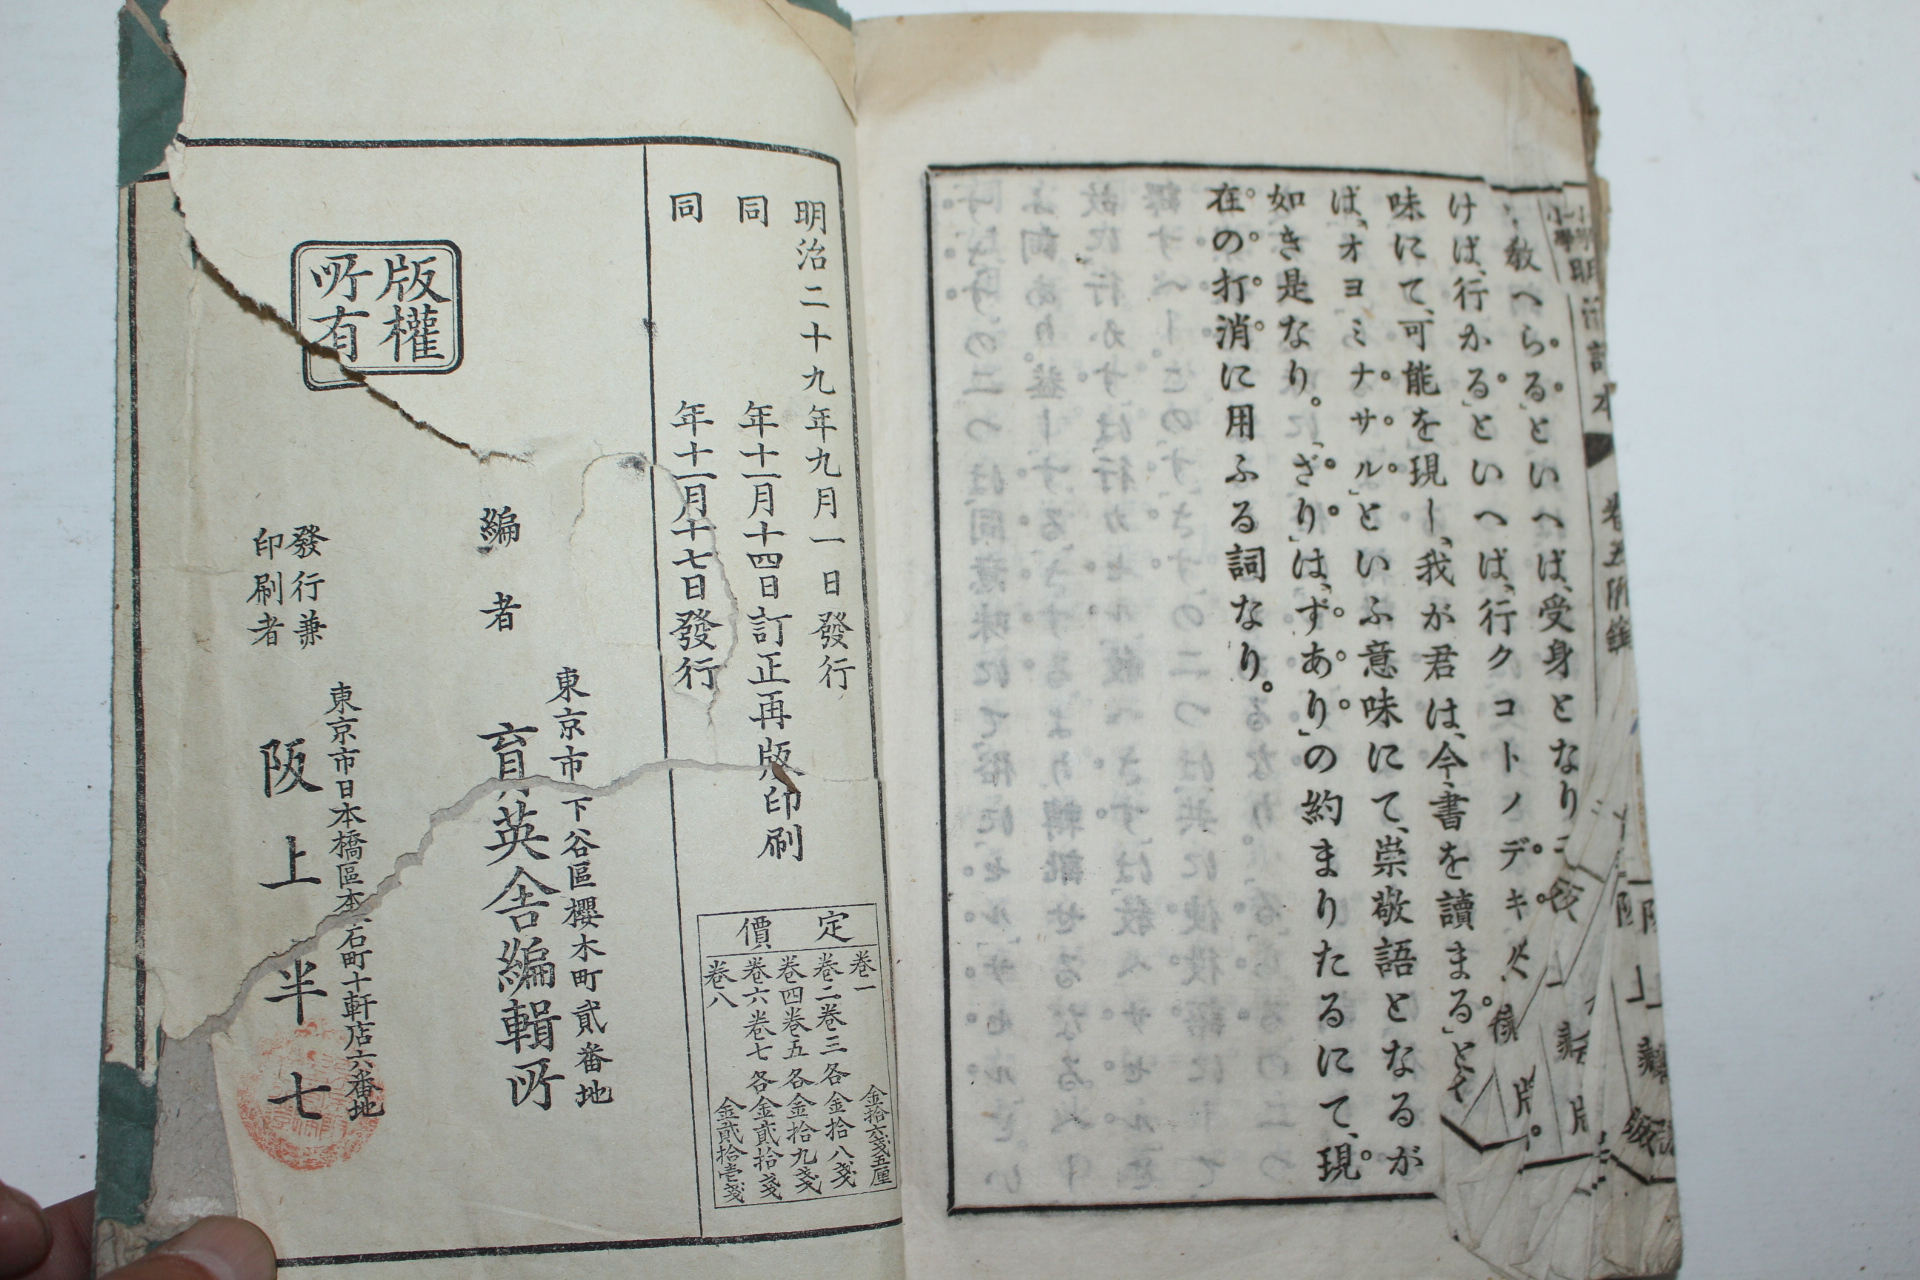 教へらる」といへば、受身となり
けば、行かる」といへば、行クコトノデキ
味にて、可能を現し、我が君は、今書を讀まる」と
ば、オヨミナサル」といふ意味にて、崇敬語となるが
如き是なり。「ざり」は、「ずあり」の約まりたるにて、現
在の打消に用ふる詞なり。
明治二十九年九月一日發行
同年十一月十四日訂正再版印刷
同年十一月十七日發行
定價
卷一 金拾六錢五厘
卷二卷三各金拾八錢
卷四卷五各金拾九錢
卷六卷七各金貳拾錢
卷八 金貳拾壱錢
版權
所有
東京市下谷區櫻木町貳番地
編者 育英舎編輯所
東京市日本橋區本石町十軒店六番地
發行兼
印刷者
阪上半七